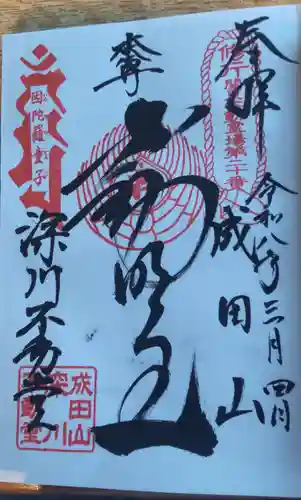 奉拝
令和八年三月四日
成田山
奉
不動明王
深川不動堂
因陀羅童子
成田山
深川
不動堂